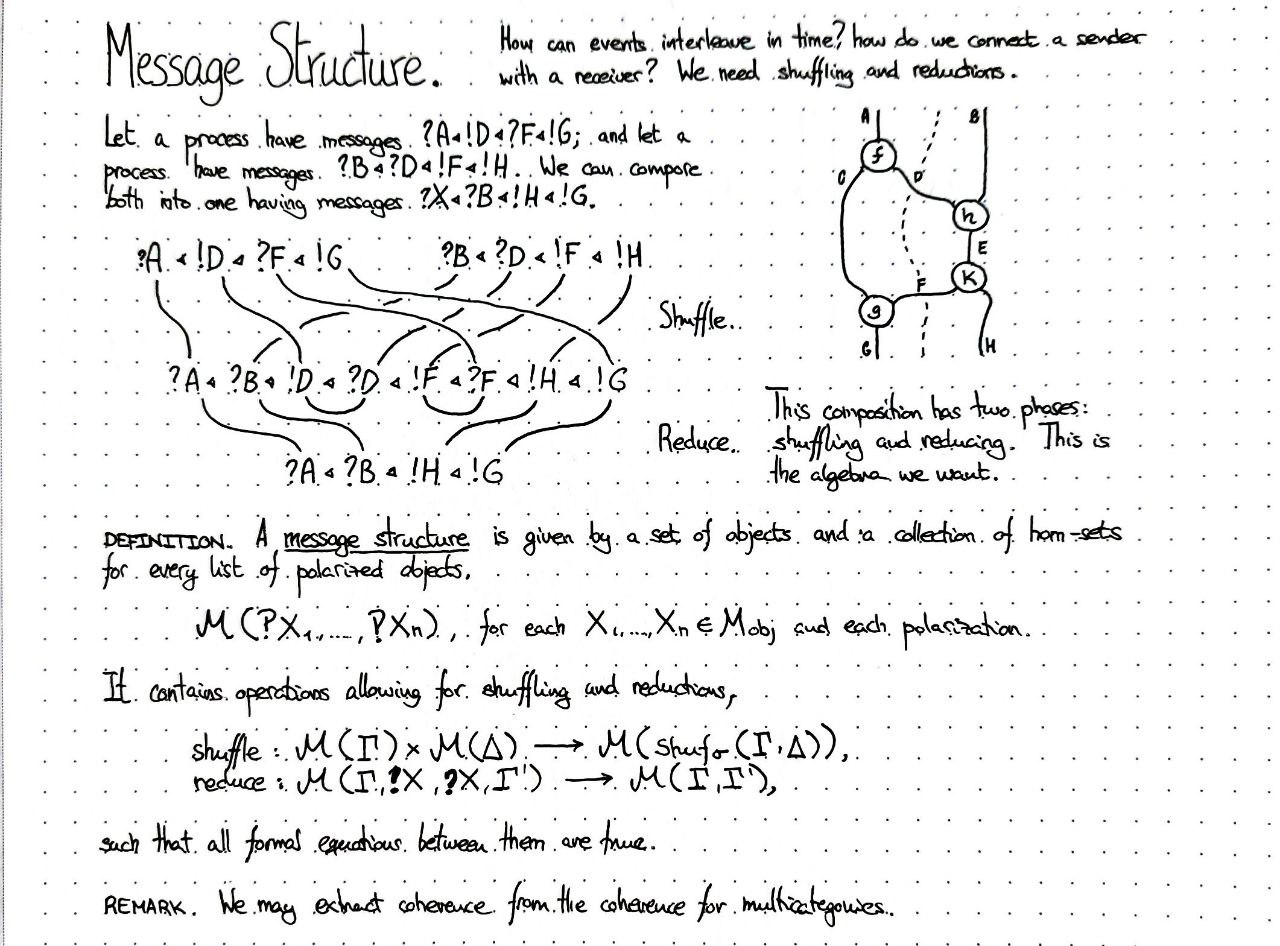 Message Structure.
How can events interleave in time? how do we connect a sender
with a receiver? We need shuffling and reductions.
Let a process have messages ?A◁!D◁?F◁!G; and let a
process have messages ?B◁?D◁!F◁!H. We can compose
both into one having messages ?X◁?B◁!H◁!G.
A B
f
C D
h
E
F K
g
G H
?A ◁ !D ◁ ?F ◁ !G ?B ◁ ?D ◁ !F ◁ !H
Shuffle.
?A ◁ ?B ◁ !D ◁ ?D ◁ !F ◁ ?F ◁ !H ◁ !G
Reduce.
?A ◁ ?B ◁ !H ◁ !G
This composition has two phases:
shuffling and reducing. This is
the algebra we want.
DEFINITION. A message structure is given by a set of objects and a collection of hom-sets
for every list of polarized objects,
M(?X₁,...., ?Xn), for each X₁,...,Xn ∈ Mobj and each polarization.
It contains operations allowing for shuffling and reductions,
shuffle : M(Γ) × M(Δ) → M(Shufσ(Γ,Δ)),
reduce : M(Γ,!X,?X,Γ') → M(Γ,Γ'),
such that all formal equations between them are true.
REMARK. We may extract coherence from the coherence for multicategories.